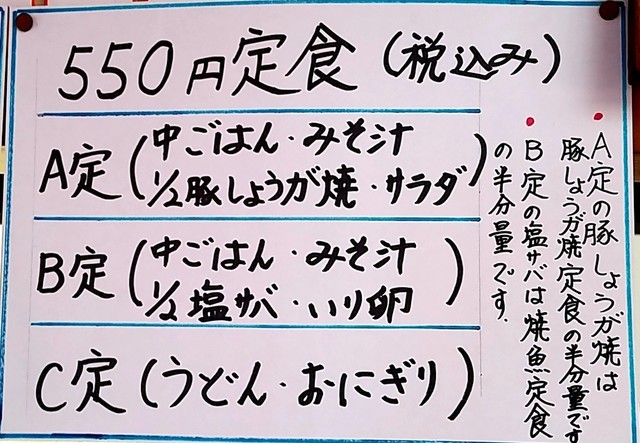 550円定食(税込み)
A定(中ごはん・みそ汁
1/2豚しょうが焼・サラダ)
B定(中ごはん・みそ汁
1/2塩サバ・いり卵)
C定(うどん・おにぎり)
・A定の豚しょうが焼は
豚しょうが焼定食の半分量です
・B定の塩サバは焼魚定食
の半分量です.